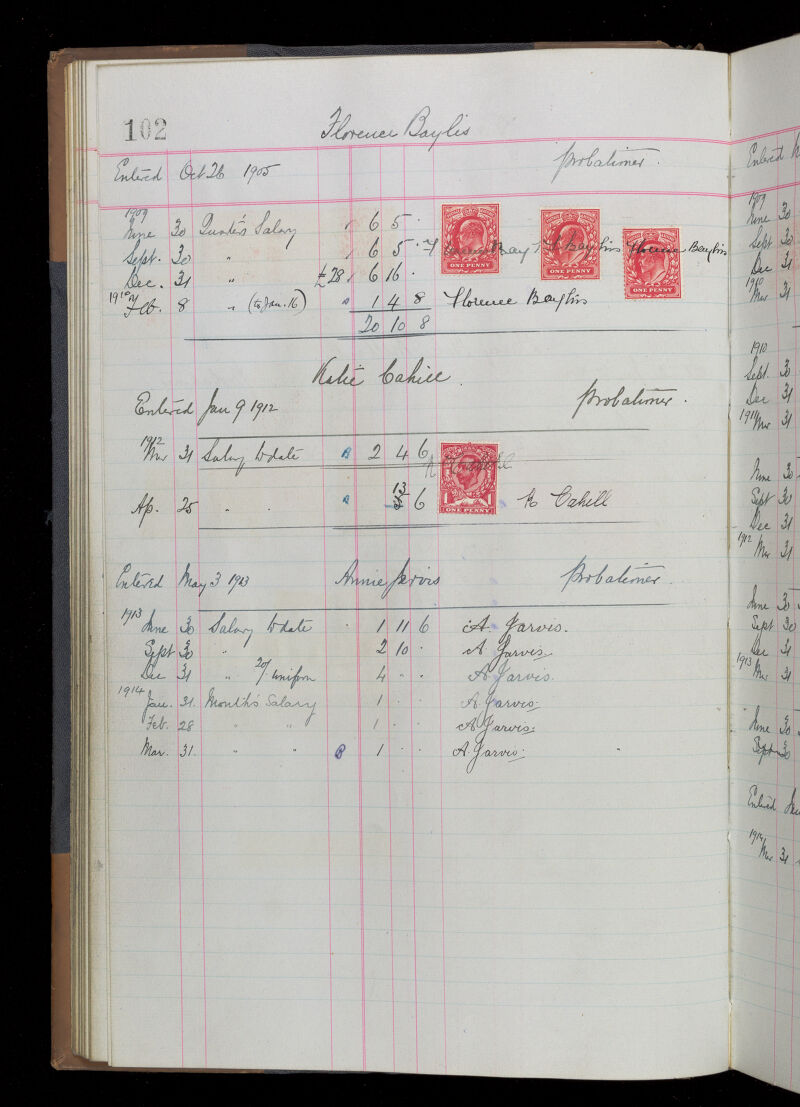 102
Florence Baylis
Entered Oct 26 1905 Probationer.
1909
June 30 Quarter's Salary 6 5 .
Sept. 30 " 6 5 . Baylis Florence Baylis
Dec. 31 " £28 6 16 .
1910
Feb. 8 " (to Jan. 16) 1 4 8 Florence Baylis
20 10 8
ONE PENNY
ONE PENNY
ONE PENNY
Katie Cahill.
Entered Jan 9 1912 Probationer.
1912
Mar 31 Salary to date B 2 4 6
1 1
ONE PENNY
Ap. 25 " " B 13 6 K Cahill
Entered May 3 1913 Annie Jarvis Probationer.
1913
June 30 Salary to date . 1 11 6 A. Jarvis.
Sept 30 " 2 10 . A Jarvis.
Dec 31 " 20/- uniform 4 . . A Jarvis.
1914
Jan. 31. Month's Salary 1 . . A Jarvis.
Feb. 28 " " 1 . . A Jarvis.
Mar. 31. " " B 1 . . A Jarvis.
Entered
1909
June 30
Sept 30
Dec 31
1910
Mar 31
1910
Sept. 30
Dec 31
1911
Mar 31
June 30
Sept 30
Dec 31
1912
Mar 31
June 30
Sept 30
Dec 31
1913
Mar 31
June 30
Sept 30
Entered
1914
Mar 31